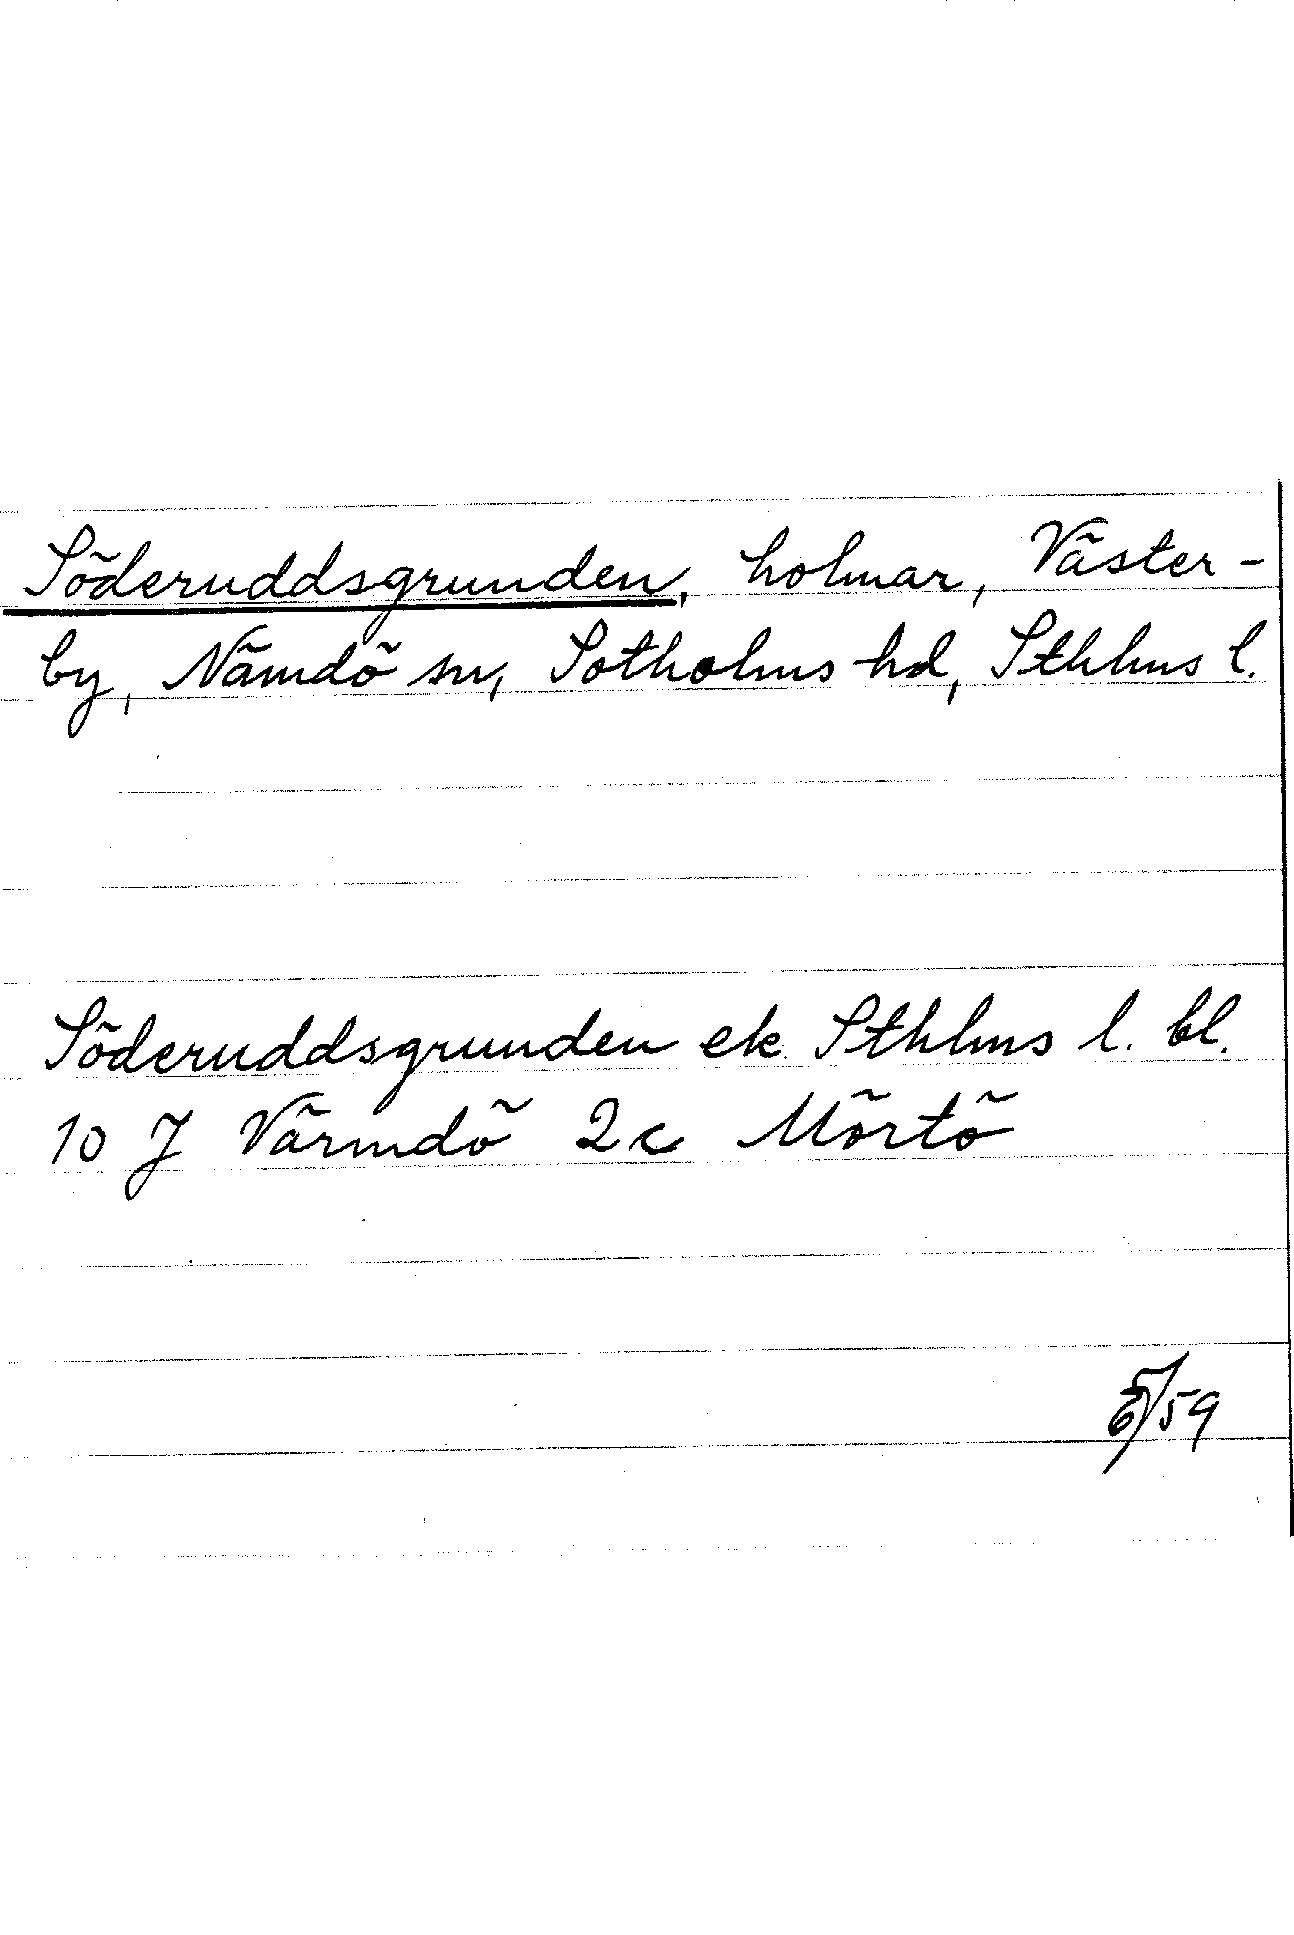 Söderuddsgrunden, holmar, Väster-
by, Nämdö sn, Sotholms hd, Sthlms l.
Söderuddsgrunden ek Sthlms l. bl.
10 J Värmdö 2c Mörtö
5/6/59